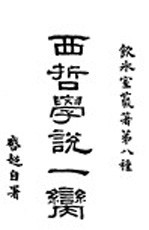 飲冰室叢著第八種
西哲學說一臠
啓超自署